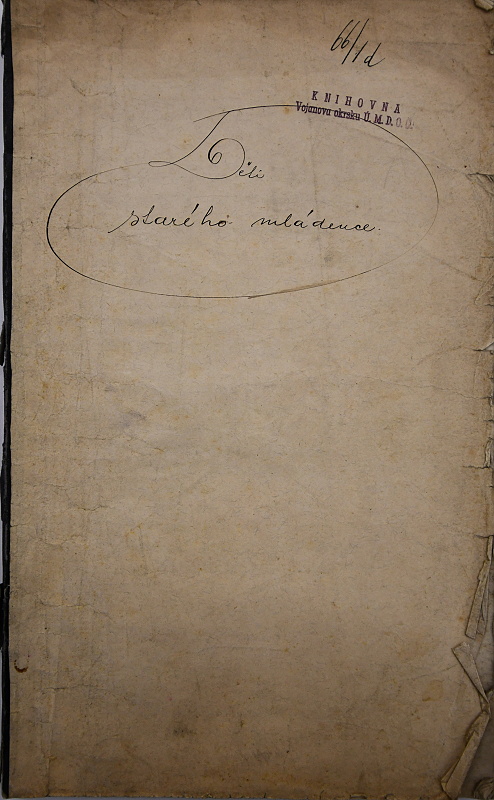 66/1d
KNIHOVNA
Vojanova okrsku Ú. M. D. O. Č.
Děti
starého mládence.